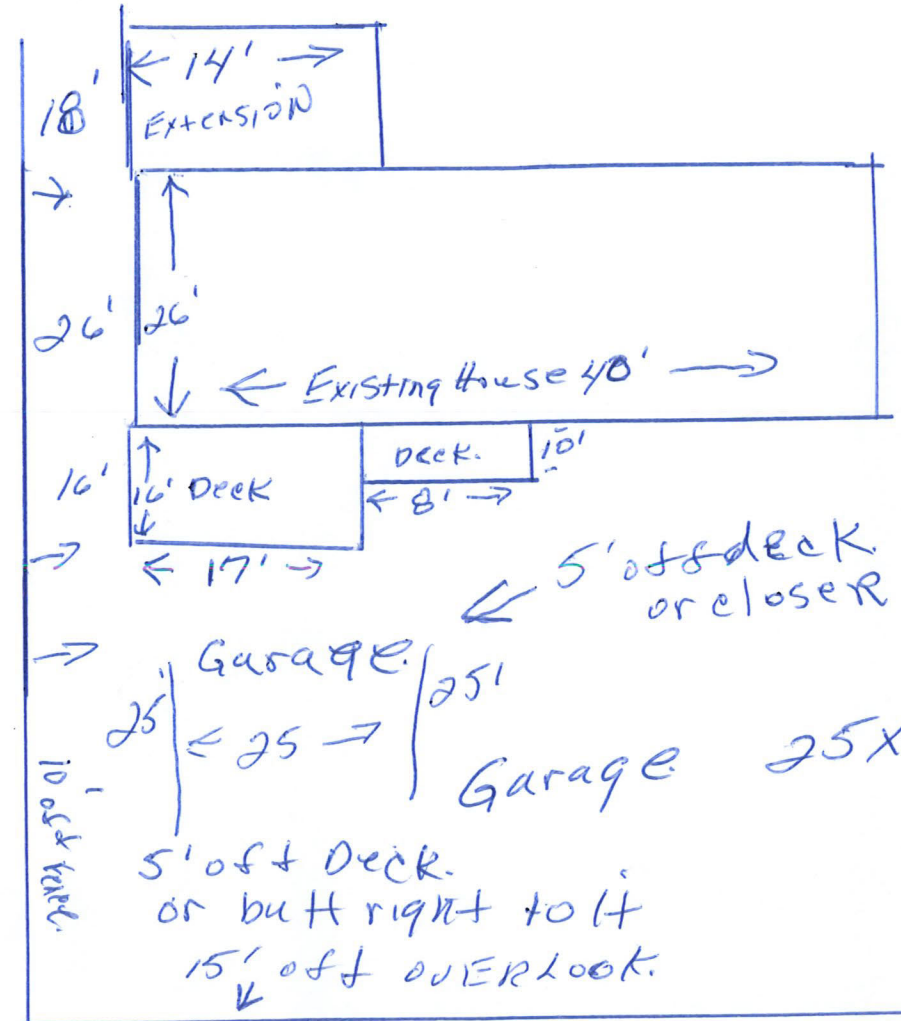 ← 14' →
18'
Extension
→
26'
26'
← Existing House 40' →
16'
16' Deck
Deck.
10'
← 8' →
→
← 17' →
5' off deck
or closer
→
Garage.
25'
← 25 →
25'
Garage 25X
10' off
5' off Deck.
or butt right to it
15' off OVERLOOK.